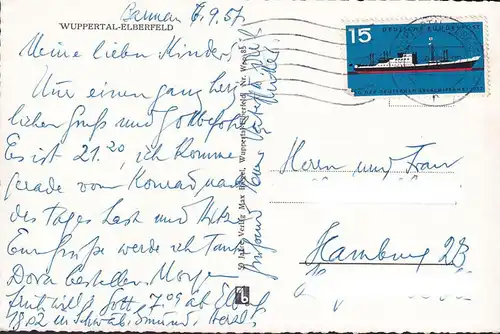 Barmen 6.9.57
WUPPERTAL-ELBERFELD
Meine lieben Kinder!
Nur einen ganz herz-
lichen Gruß und Gottbefohlen
Es ist 21.20, ich komme
gerade vom Konrad nach
des Tages Last und Hitze
Eure Grüße werde ich Tante
Dora bestellen. Morgen
früh will's Gott 7.09 ab Elberf.
18.02 in Schwäb. Gmünd. Herzl.
50 Jahre Verlag Max Wuppertal-Elberfeld
15
DEUTSCHE BUNDESPOST
Herrn und Frau
Hamburg 28